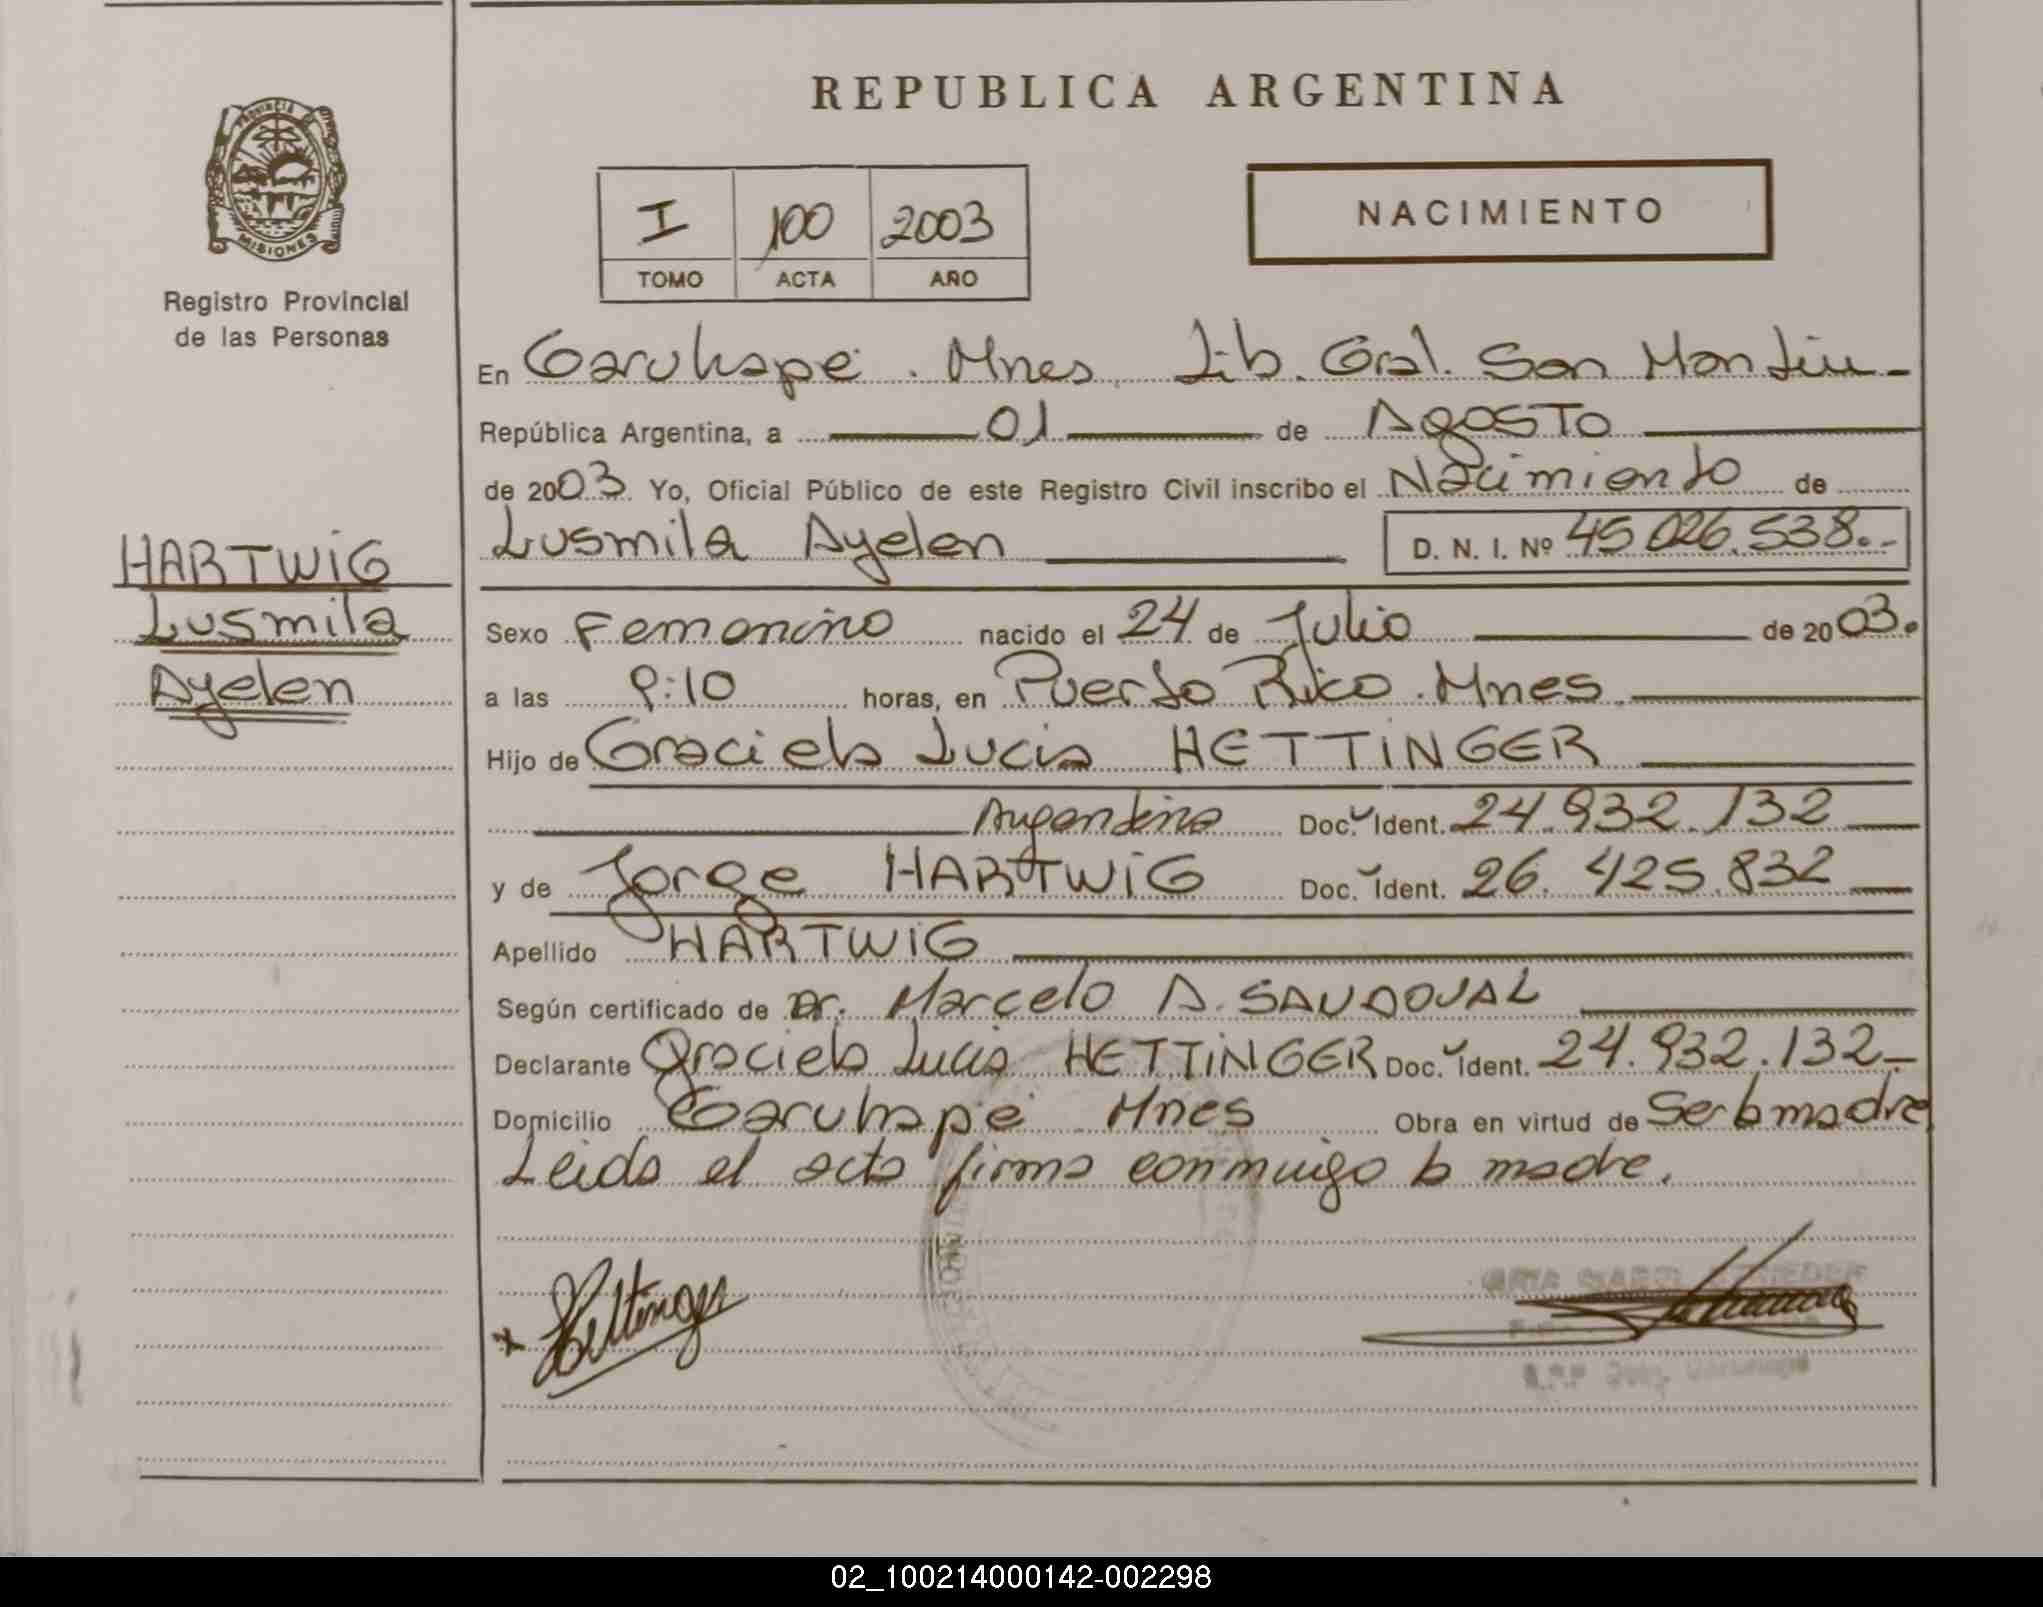 REPUBLICA ARGENTINA
PROVINCIA DE MISIONES
Registro Provincial
de las Personas
I 100 2003
TOMO ACTA AÑO
NACIMIENTO
En Garuhapé. Mnes. Lib. Gral. San Martin-
República Argentina, a 01 de Agosto
de 2003. Yo, Oficial Público de este Registro Civil inscribo el Nacimiento de
Lusmila Ayelen D. N. I. Nº 45.026.538.-
HARTWiG
Lusmila
Ayelen
Sexo Femenino nacido el 24 de Julio de 2003.
a las 9:10 horas, en Puerto Rico. Mnes.
Hijo de Graciela Lucia HETTiNGER
Argentina Doc. Ident. 24.932.132
y de Jorge HARTWiG Doc. Ident. 26.425.832
Apellido HARTWiG
Según certificado de Dr. Marcelo A. SANDOVAL
Declarante Graciela Lucia HETTiNGER Doc. Ident. 24.932.132-
Domicilio Garuhapé Mnes Obra en virtud de Ser la madre
Leida el acta firma conmigo la madre.
x Hettinger
02_100214000142-002298